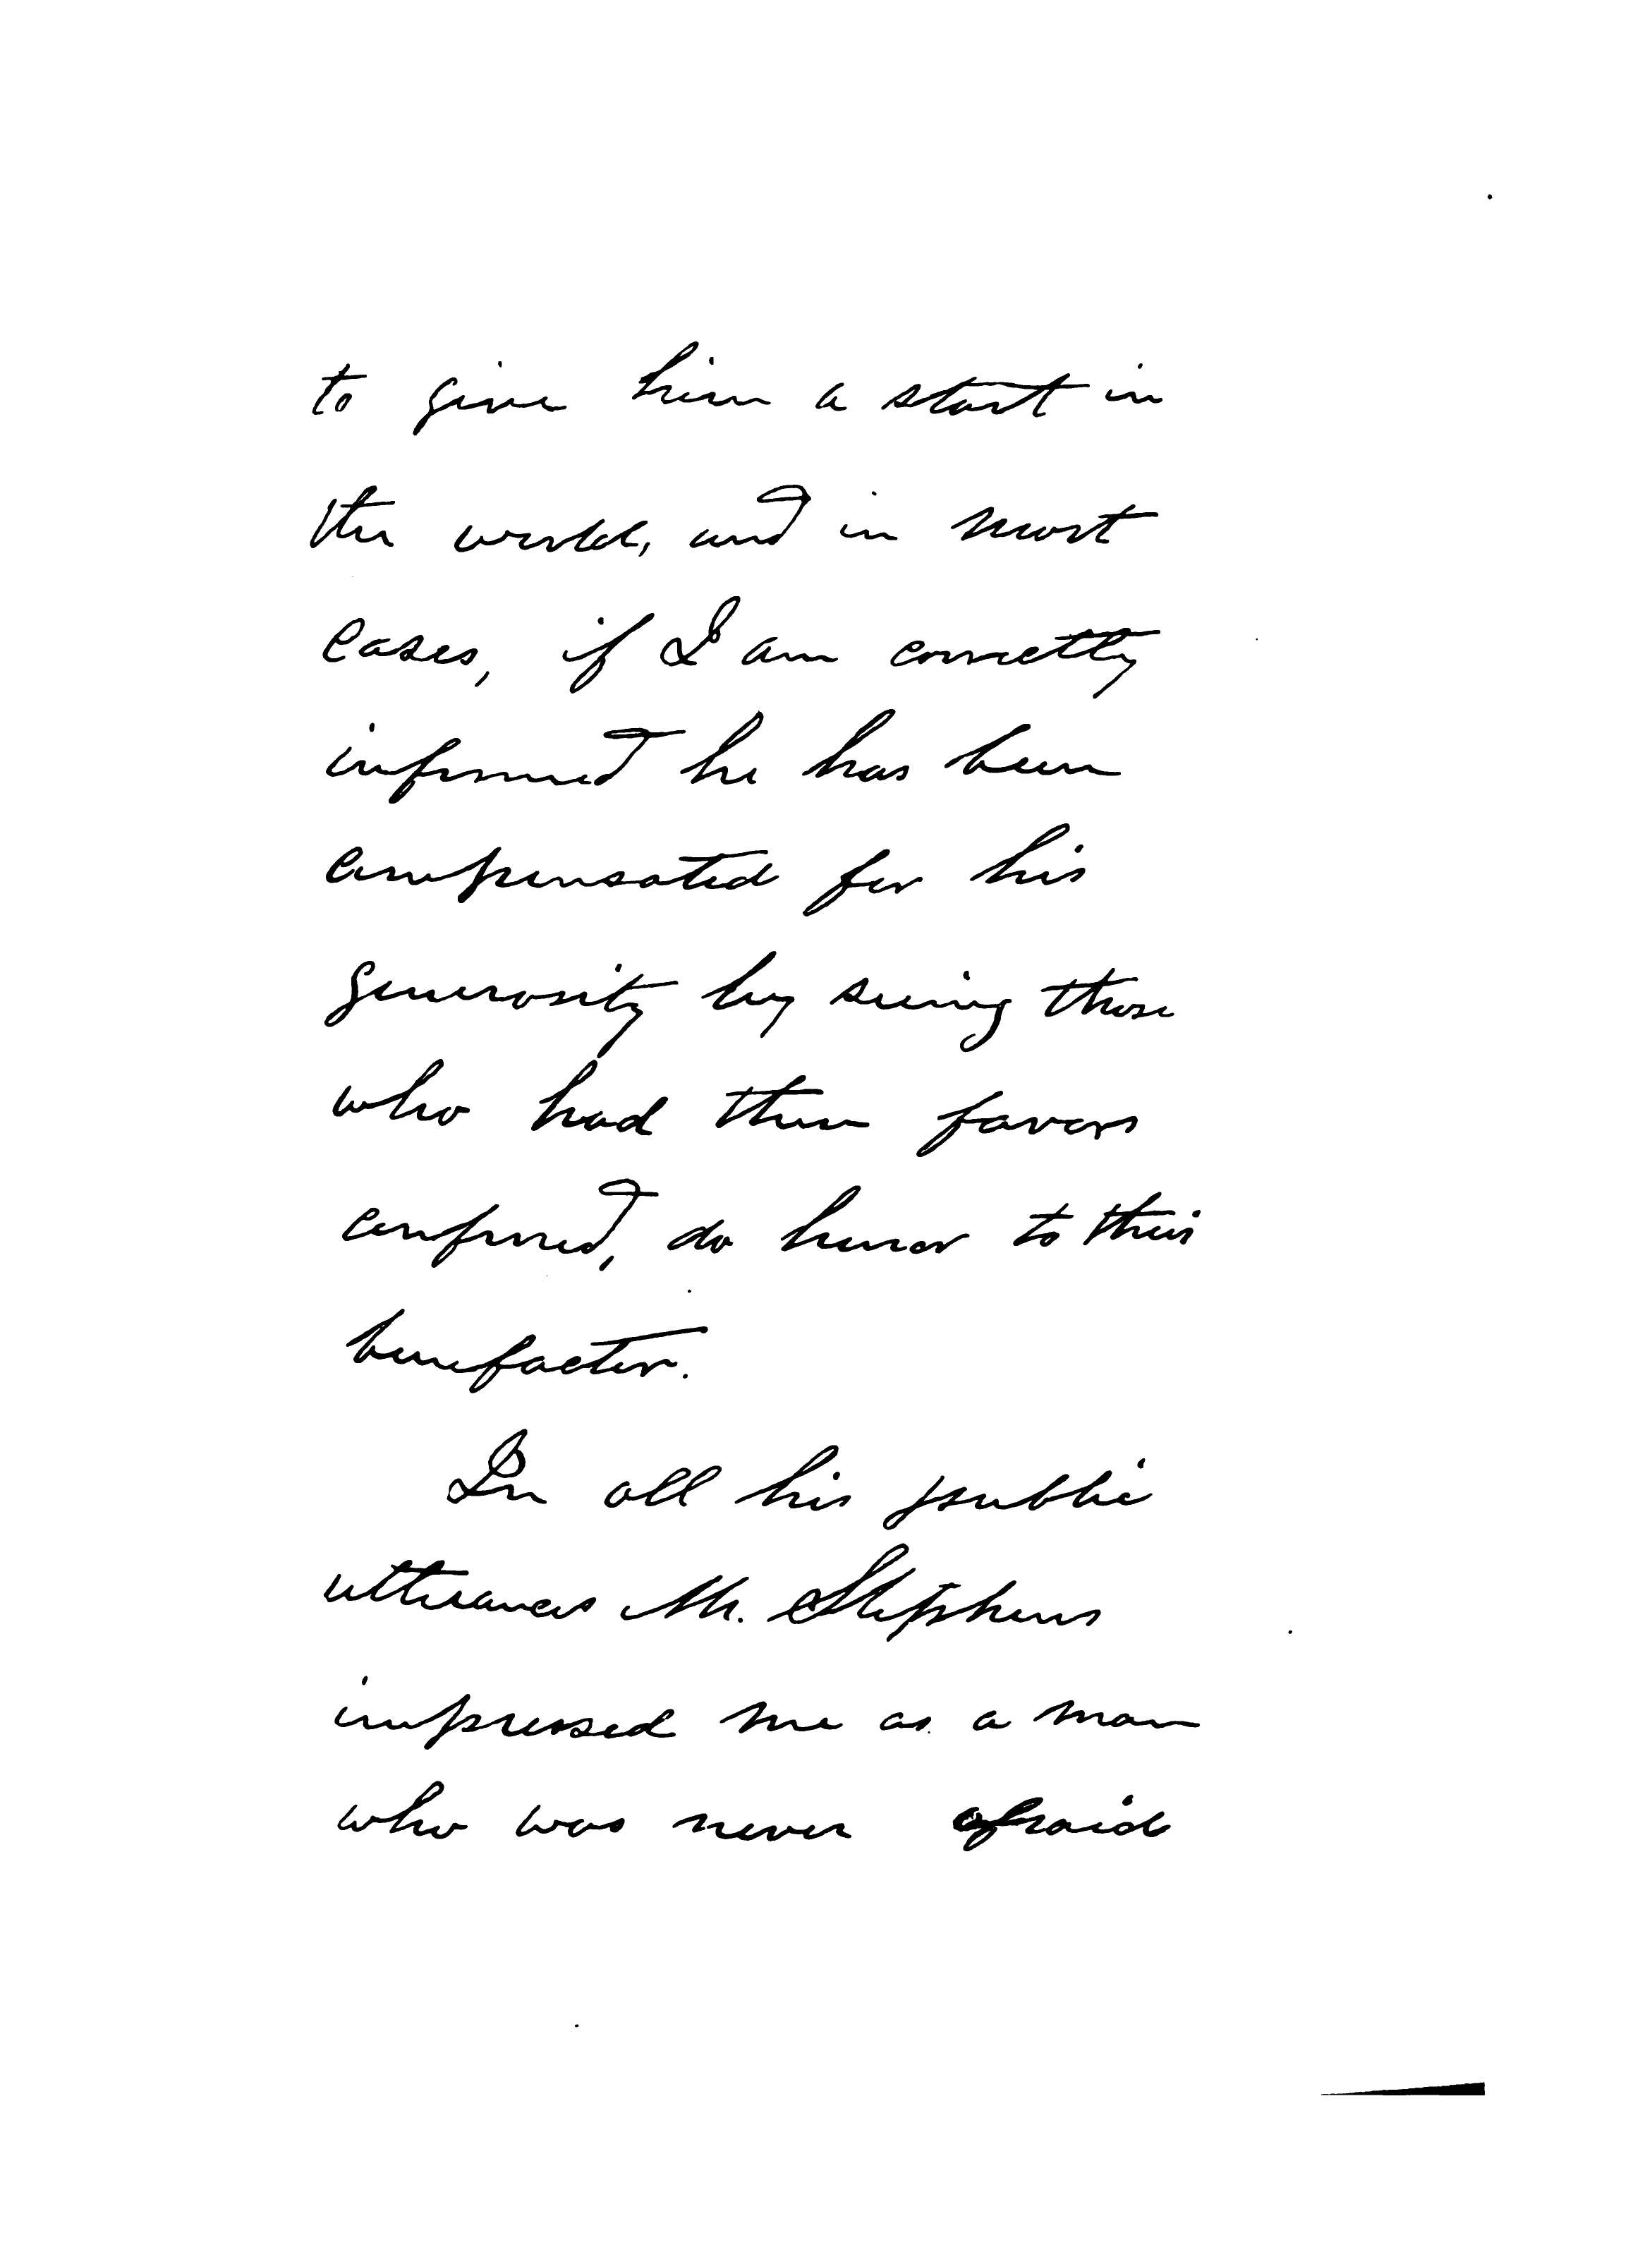 to give him a start in
the world, and in most
cases, if I am correctly
informed he has been
compensated for his
generosity by seeing those
who had them favors
conferred, do honor to their
benefactor.
In all his public
utterances Mr. Stephens
impressed me as a man
who was never afraid